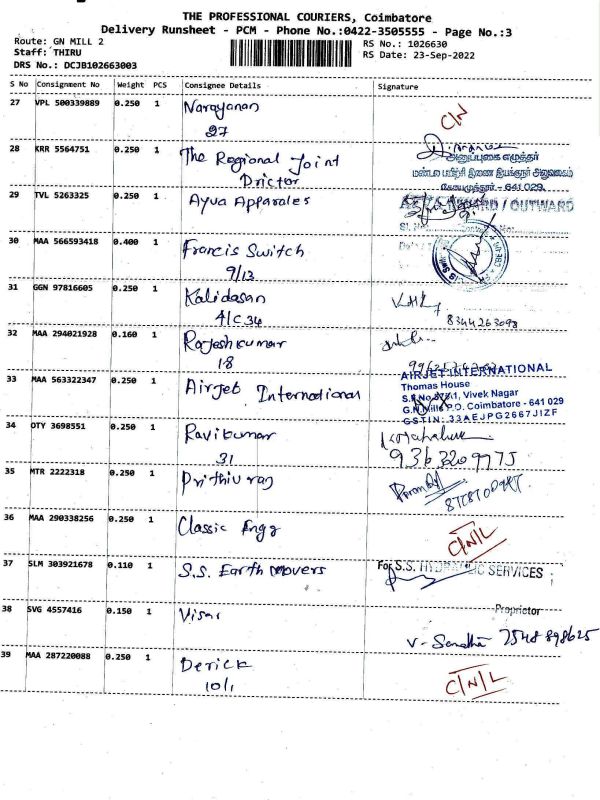 THE PROFESSIONAL COURIERS, Coimbatore
Delivery Runsheet - PCM - Phone No.:0422-3505555 - Page No.:3
Route: GN MILL 2
RS No.: 1026630
Staff: THIRU
RS Date: 23-Sep-2022
DRS No.: DCJB102663003
S No Consignment No Weight PCS Consignee Details Signature
27 VPL 500339889 0.250 1 Narayanan
27
C/N
28 KRR 5564751 0.250 1 The Regional Joint
Drictor
அனுப்புகை எழுத்தர்
மண்டல பயிற்சி இணை இயக்குநர் அலுவலகம்
கோயமுத்தூர் - 641 029.
29 TVL 5263325 0.250 1 Ayua Apparales
INWARD / OUTWARD
30 MAA 566593418 0.400 1 Francis Switch
9/13
31 GGN 97816605 0.250 1 Kalidasan
4/C 34
8344263098
32 MAA 294021928 0.160 1 Rajeshkumar
18
33 MAA 563322347 0.250 1 Airjet International
AIRJET INTERNATIONAL
Thomas House
Vivek Nagar
G.N.Mills P.O. Coimbatore - 641 029
GSTIN: 33AEJPG2667J1ZF
34 OTY 3698551 0.250 1 Ravikumar
31
9363209775
35 MTR 2222318 0.250 1 Prithiv raj
36 MAA 290338256 0.250 1 Classic Engg
C/N/L
37 SLM 303921678 0.110 1 S.S. Earth movers
For S.S. HYDRAULIC SERVICES
Proprietor
38 SVG 4557416 0.150 1 Visar
7548898625
39 MAA 287220088 0.250 1 Derick
10/1
C/N/L